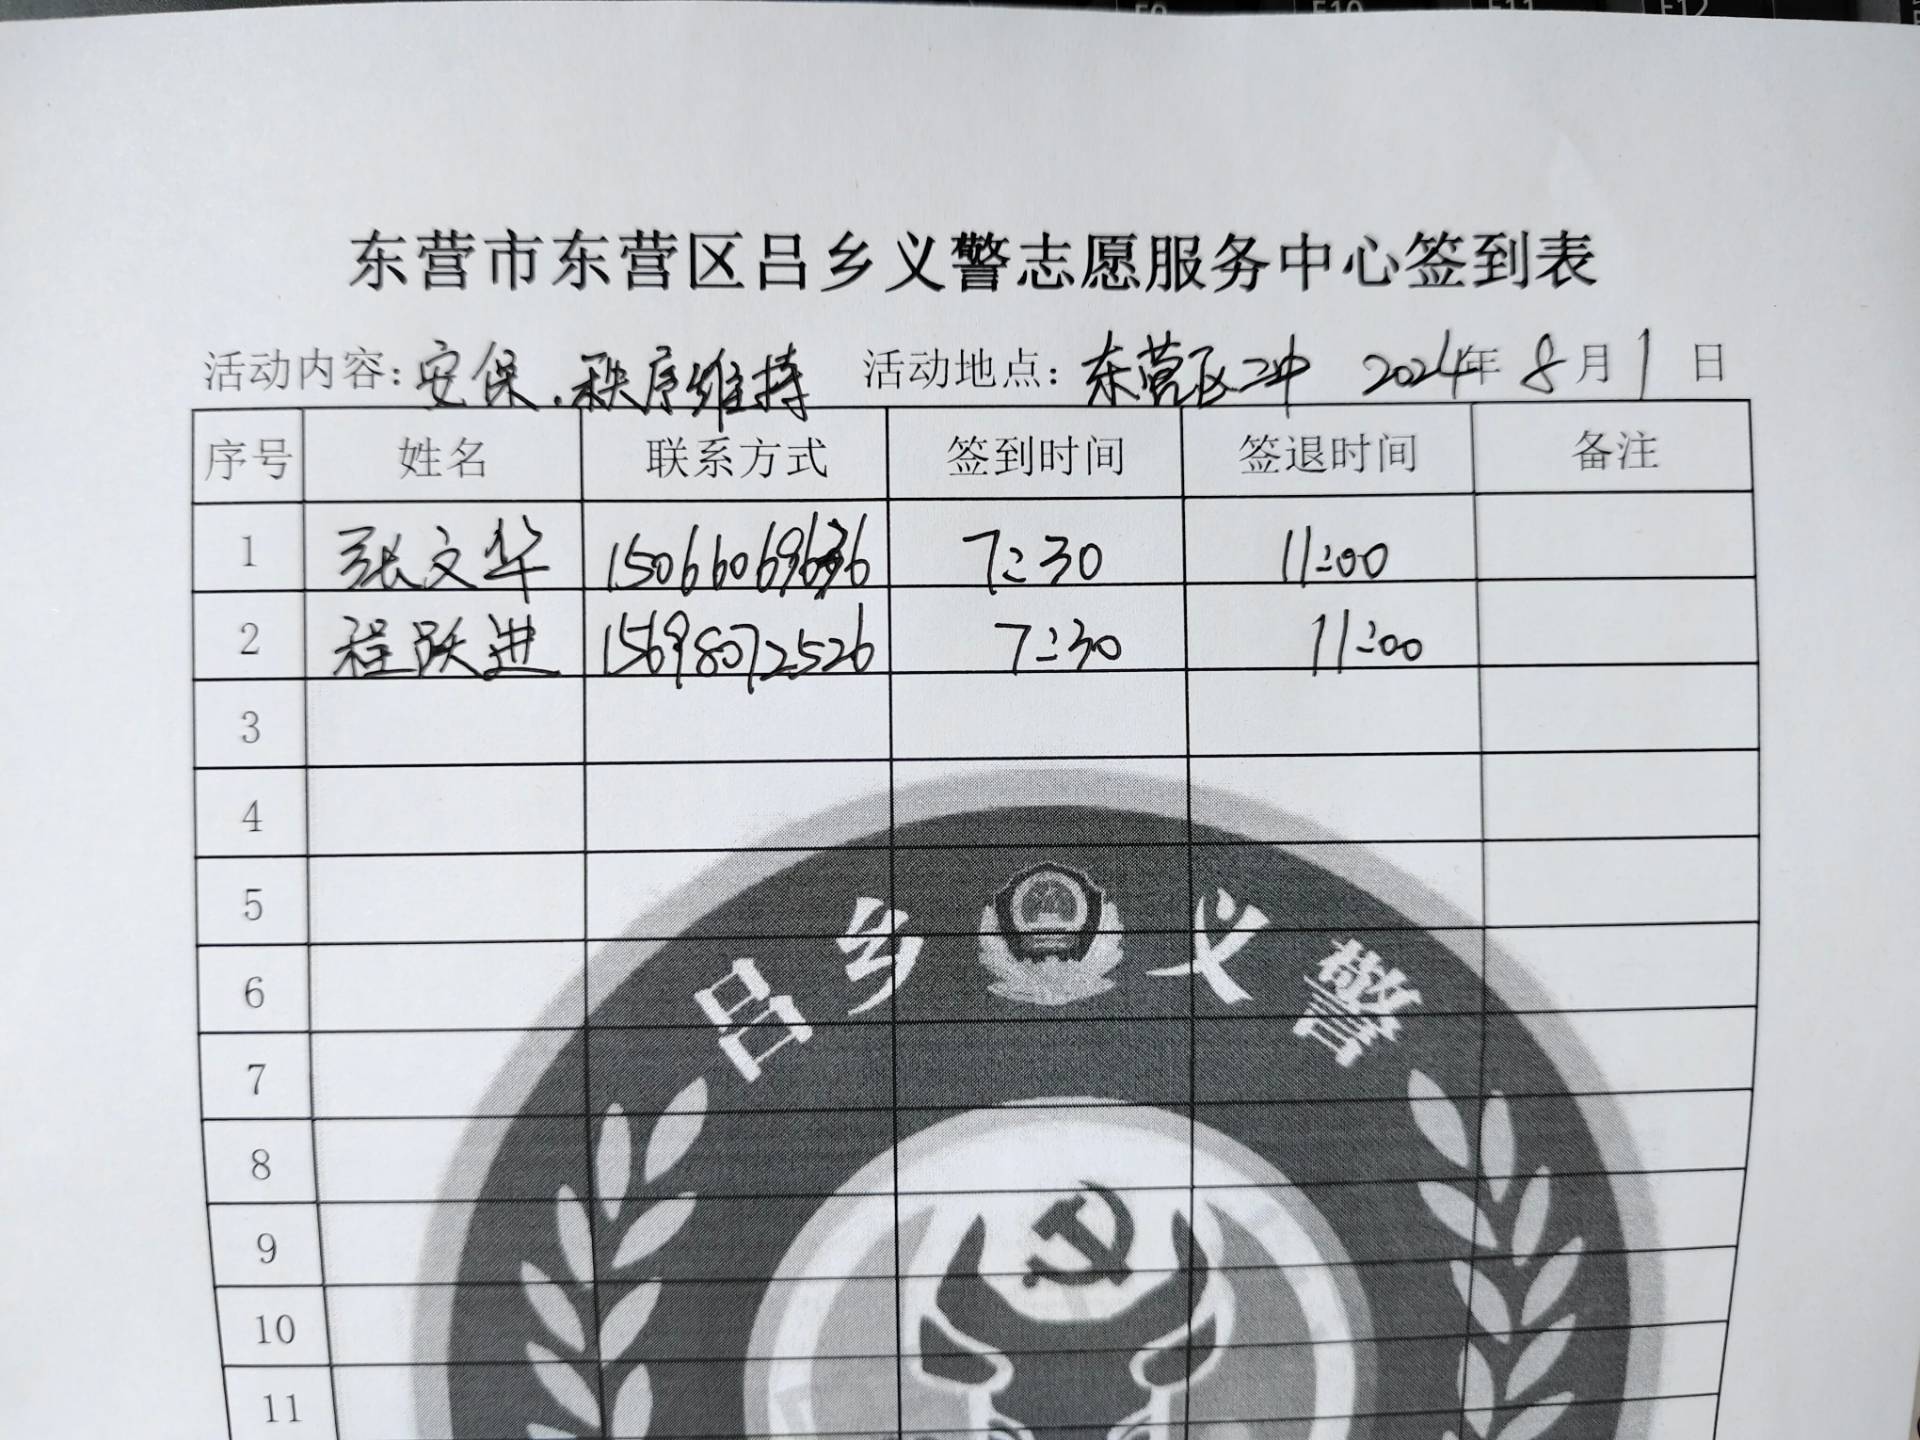 F9 F10 F11 F12
东营市东营区吕乡义警志愿服务中心签到表
活动内容：安保、秩序维持 活动地点：东营区二中 2024年 8月1日
序号 姓名 联系方式 签到时间 签退时间 备注
1 张文华 7:30 11:00
2 程跃进 15698072526 7:30 11:00
3
4
5
6
7
8
9
10
11
吕乡义警